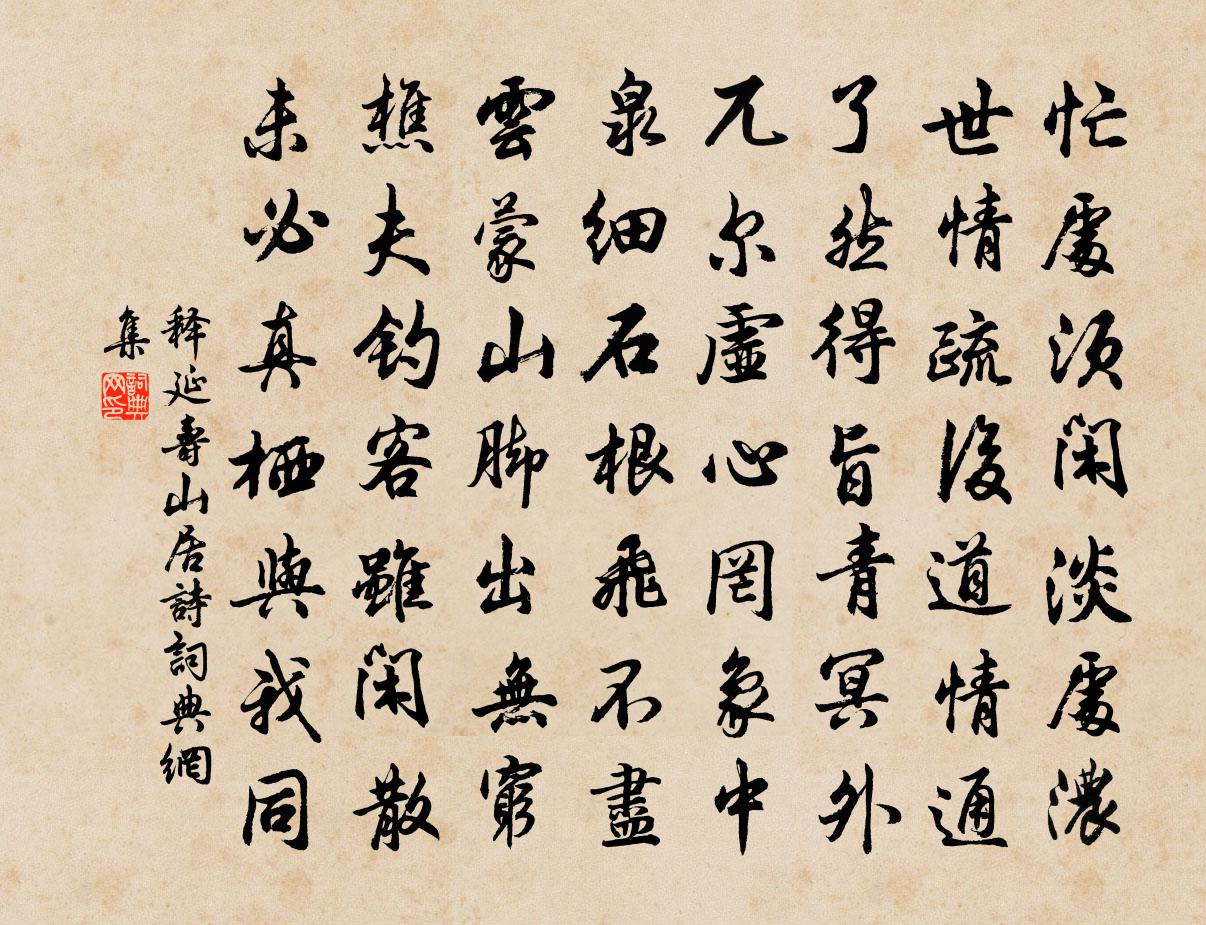 忙處須閑淡處濃
世情疏後道情通
了然得旨青冥外
兀尔虛心罔象中
泉细石根飛不盡
雲蒙山脚出無窮
樵夫钓客雖閑散
未必真栖與我同
释延壽山居詩詞典網
集
詞典
网印